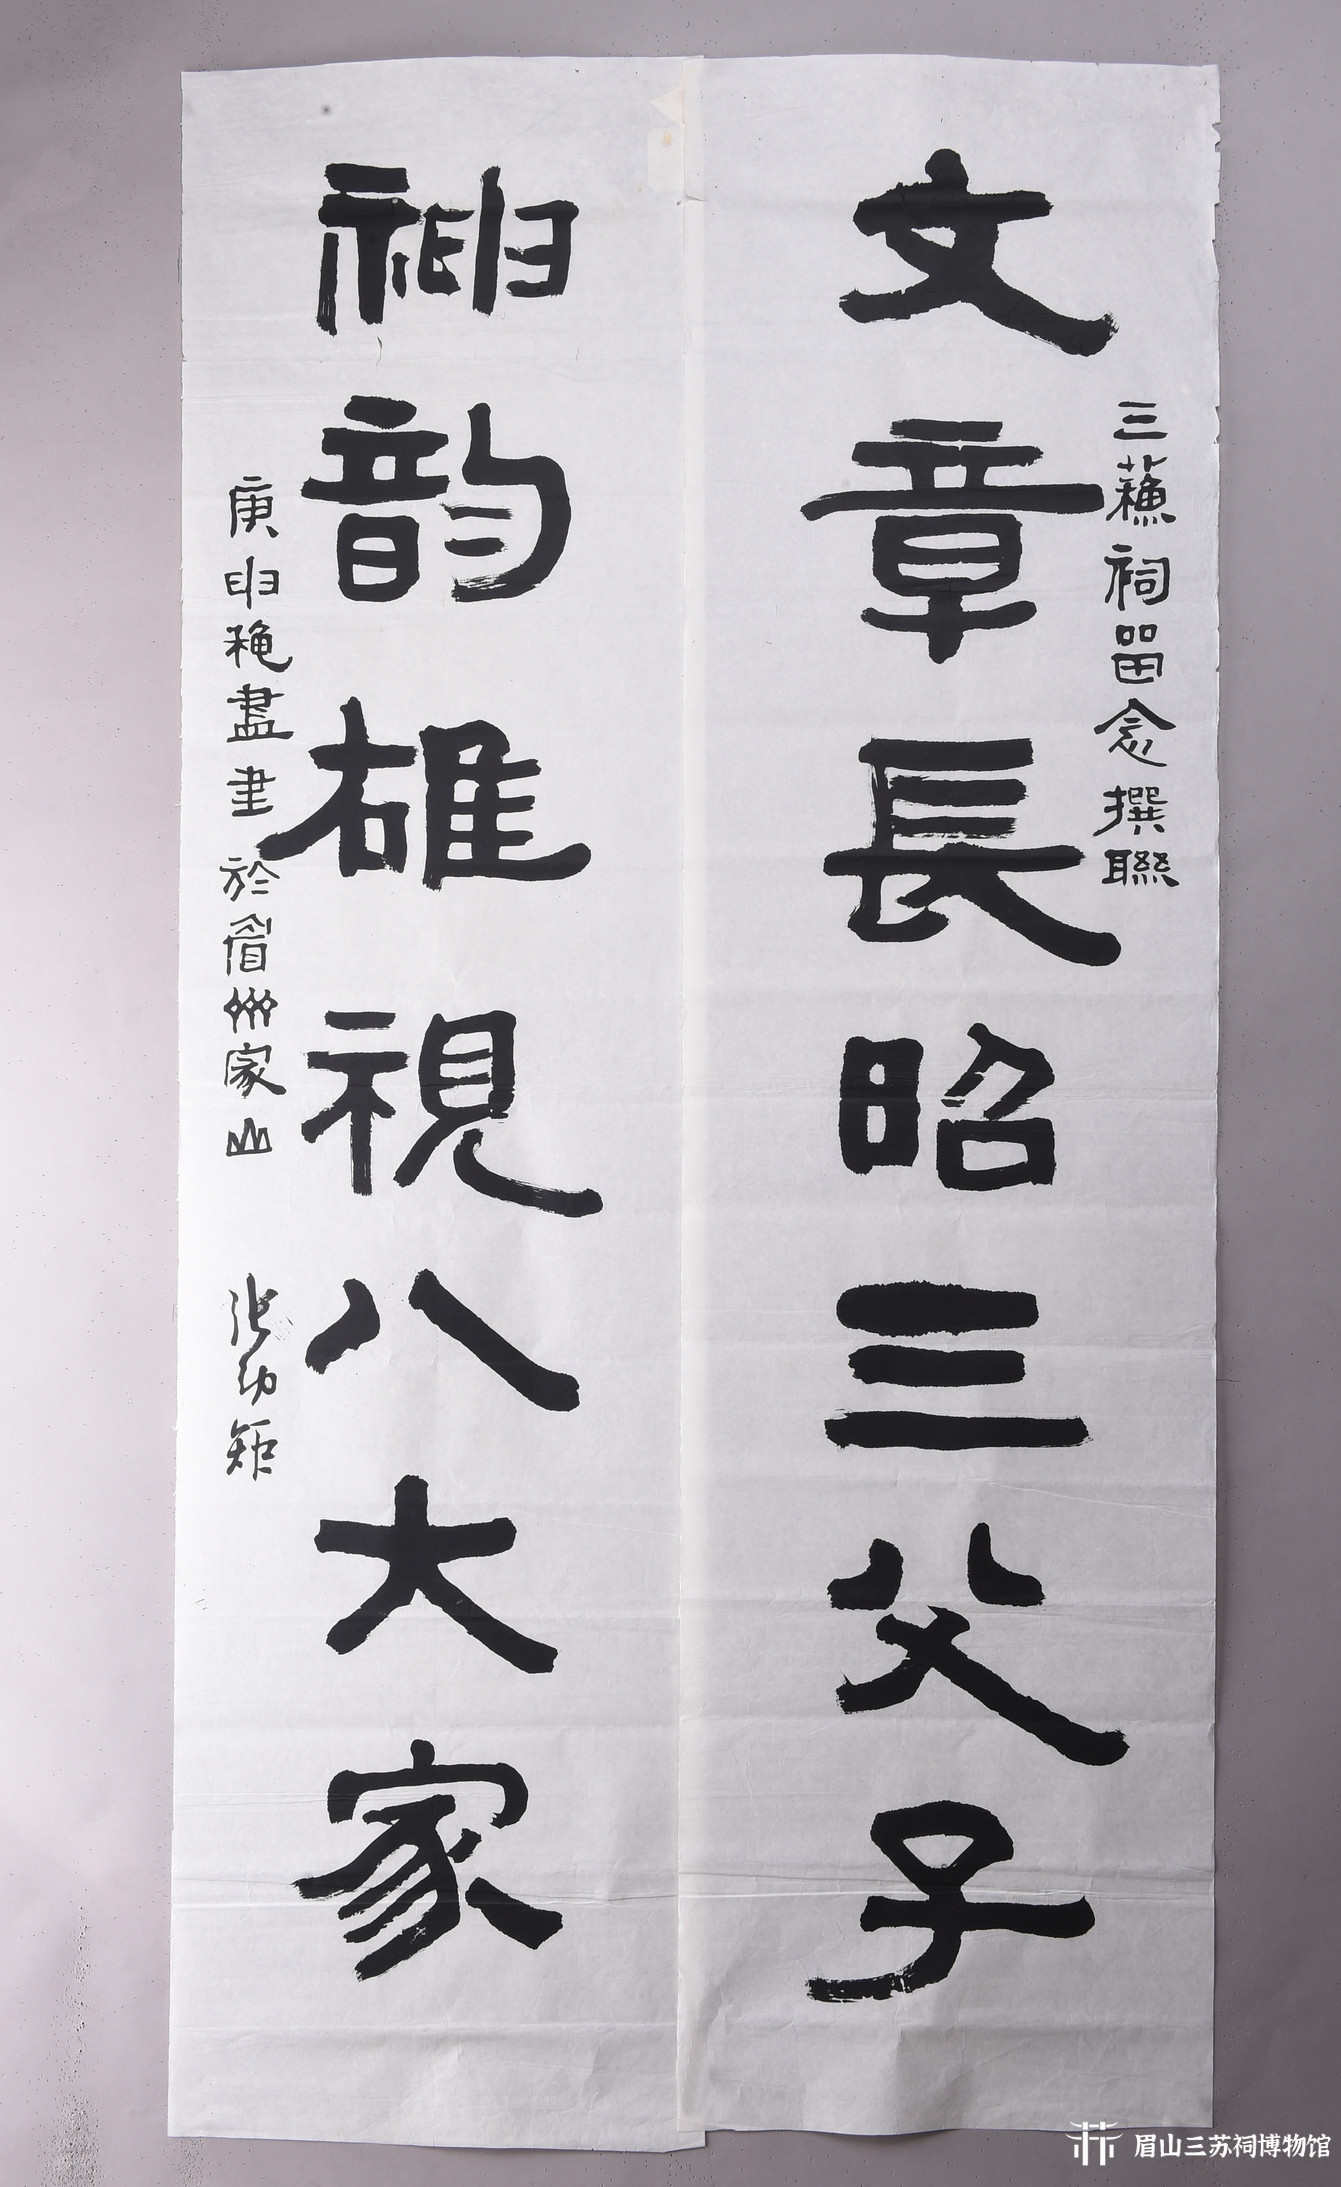 三蘇祠留念撰聯
文章長昭三父子
神韵雄視八大家
庚申秋盡書於眉州家山
張幼矩
眉山三苏祠博物馆